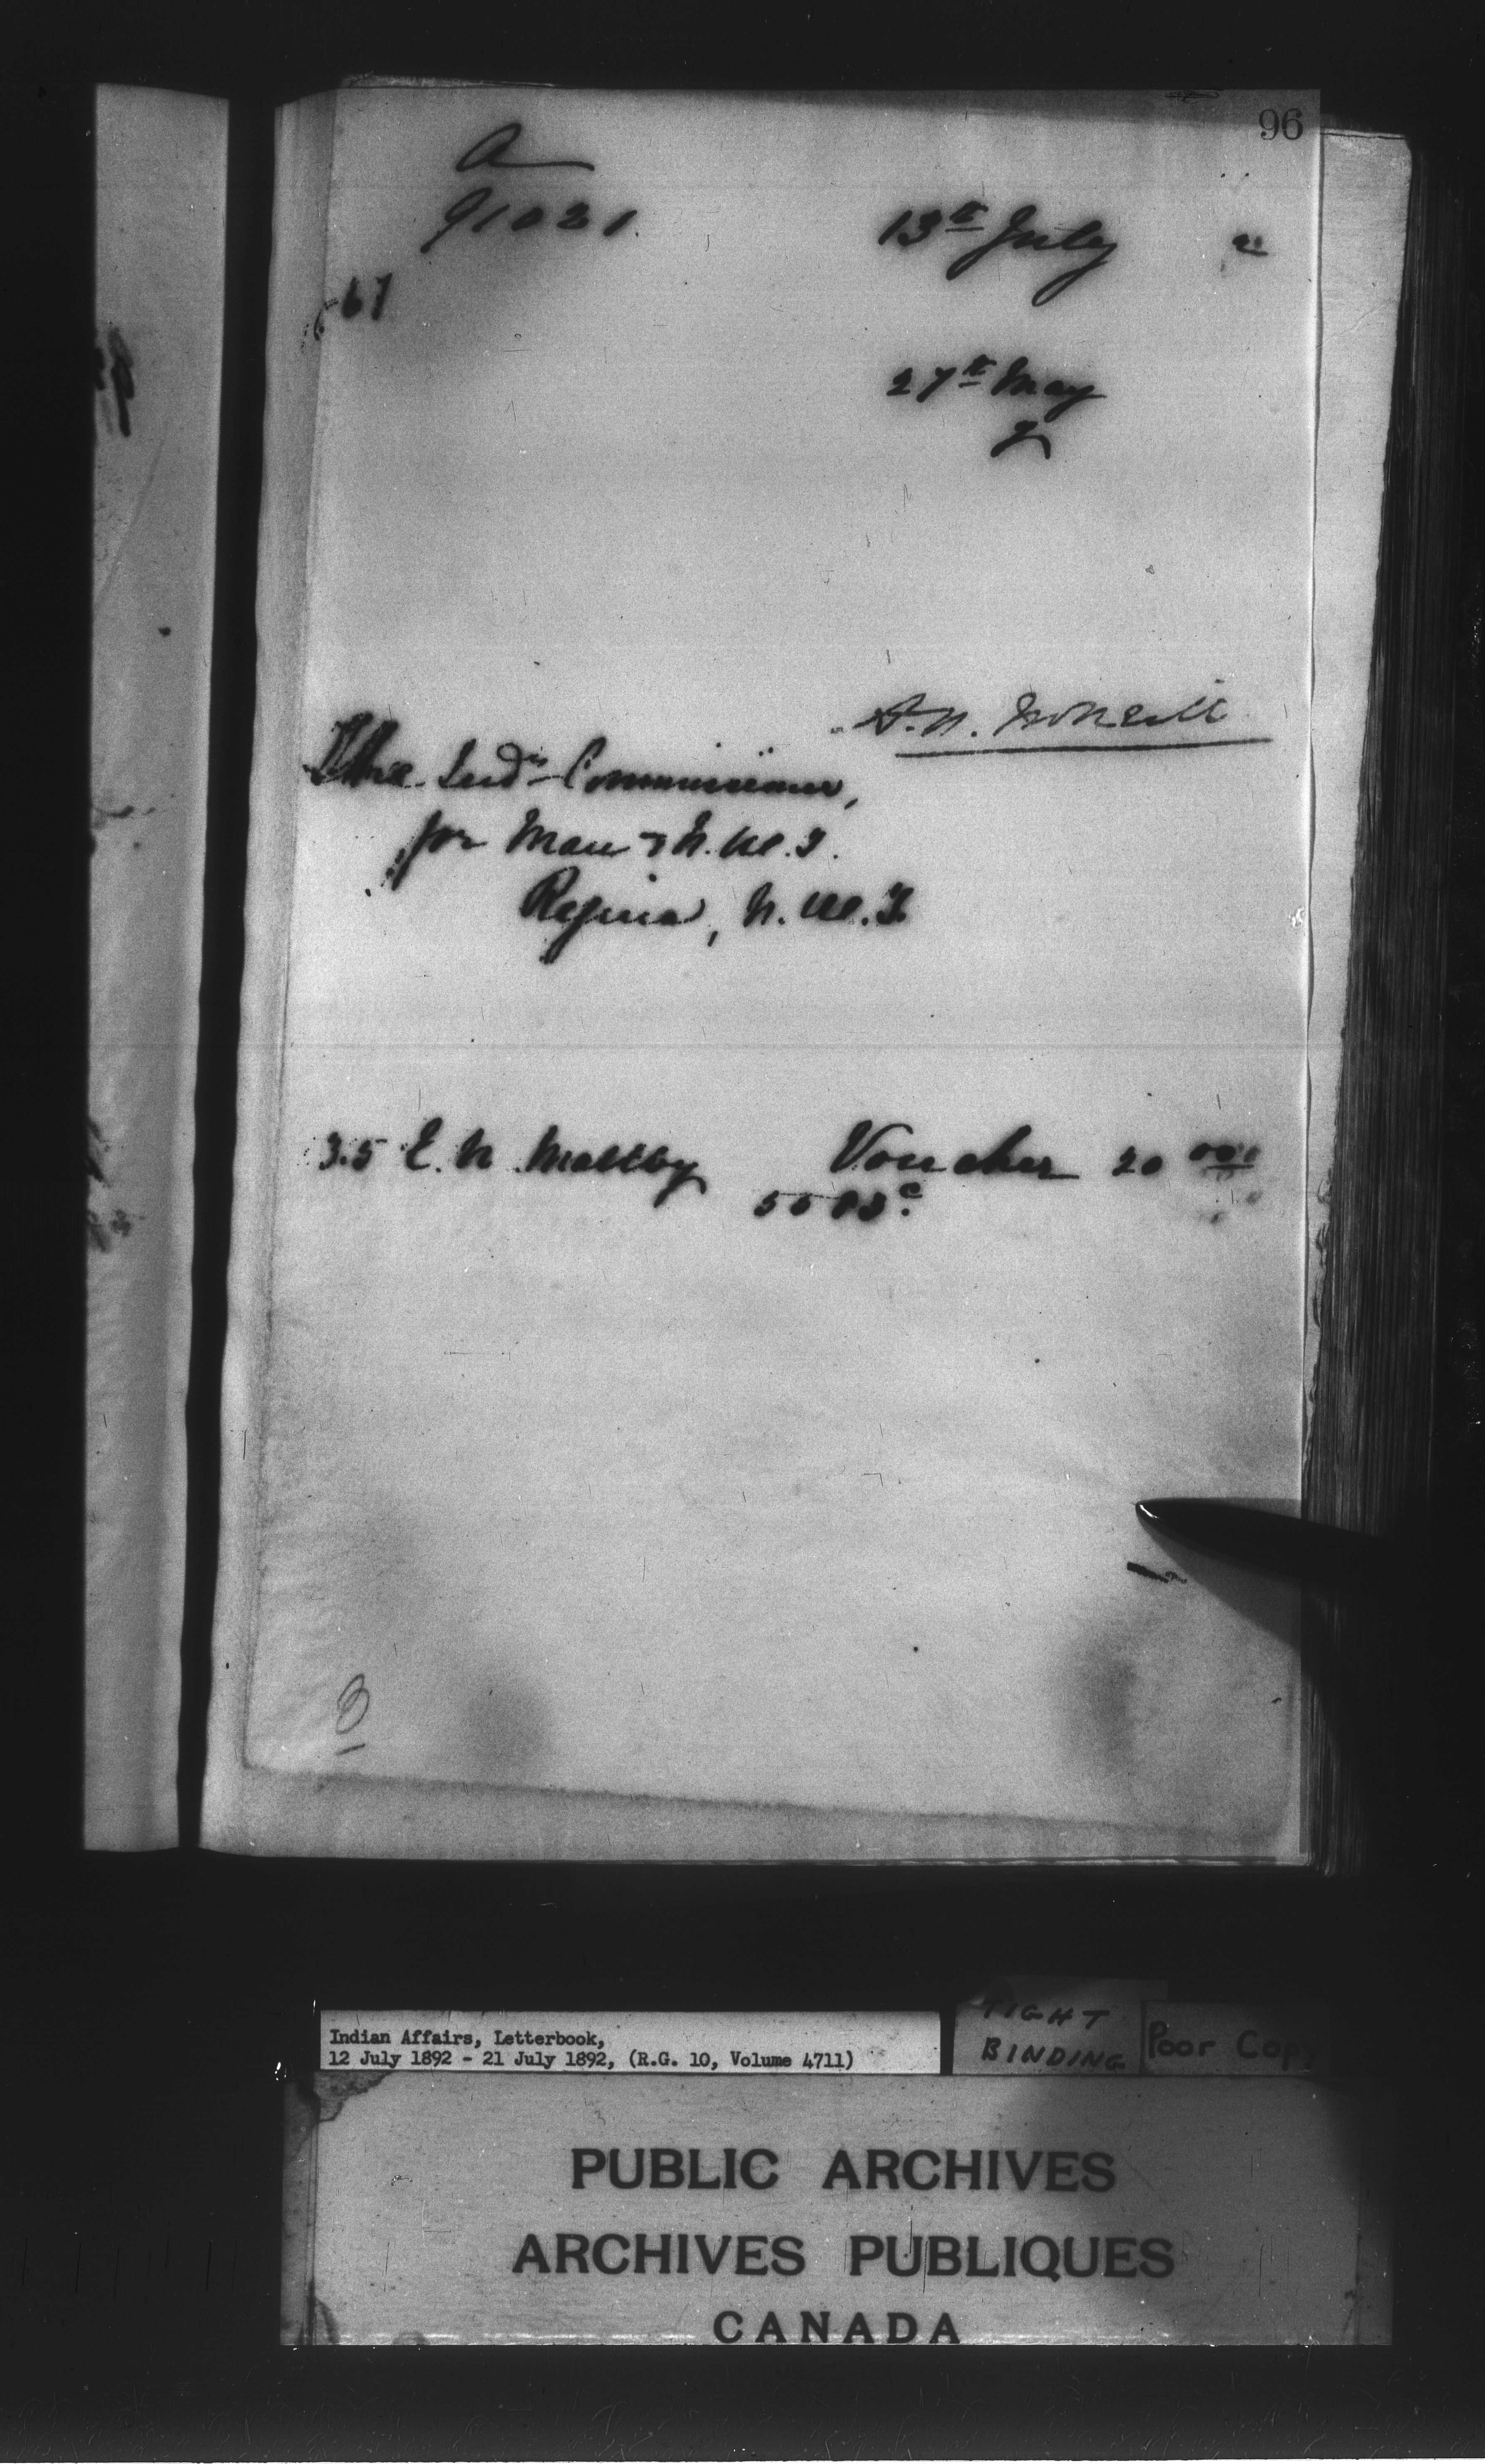 96
A
91021.
13th July 2
67
27th May
A.N. McNeill
The Indn Commissioner,
for Man & N.W.T.
Regina, N.W.T.
35 E. N Maltby Voucher 20 00
5583c
B
Indian Affairs, Letterbook,
12 July 1892 - 21 July 1892, (R.G. 10, Volume 4711)
TIGHT
BINDING
Poor Copy
PUBLIC ARCHIVES
ARCHIVES PUBLIQUES
CANADA